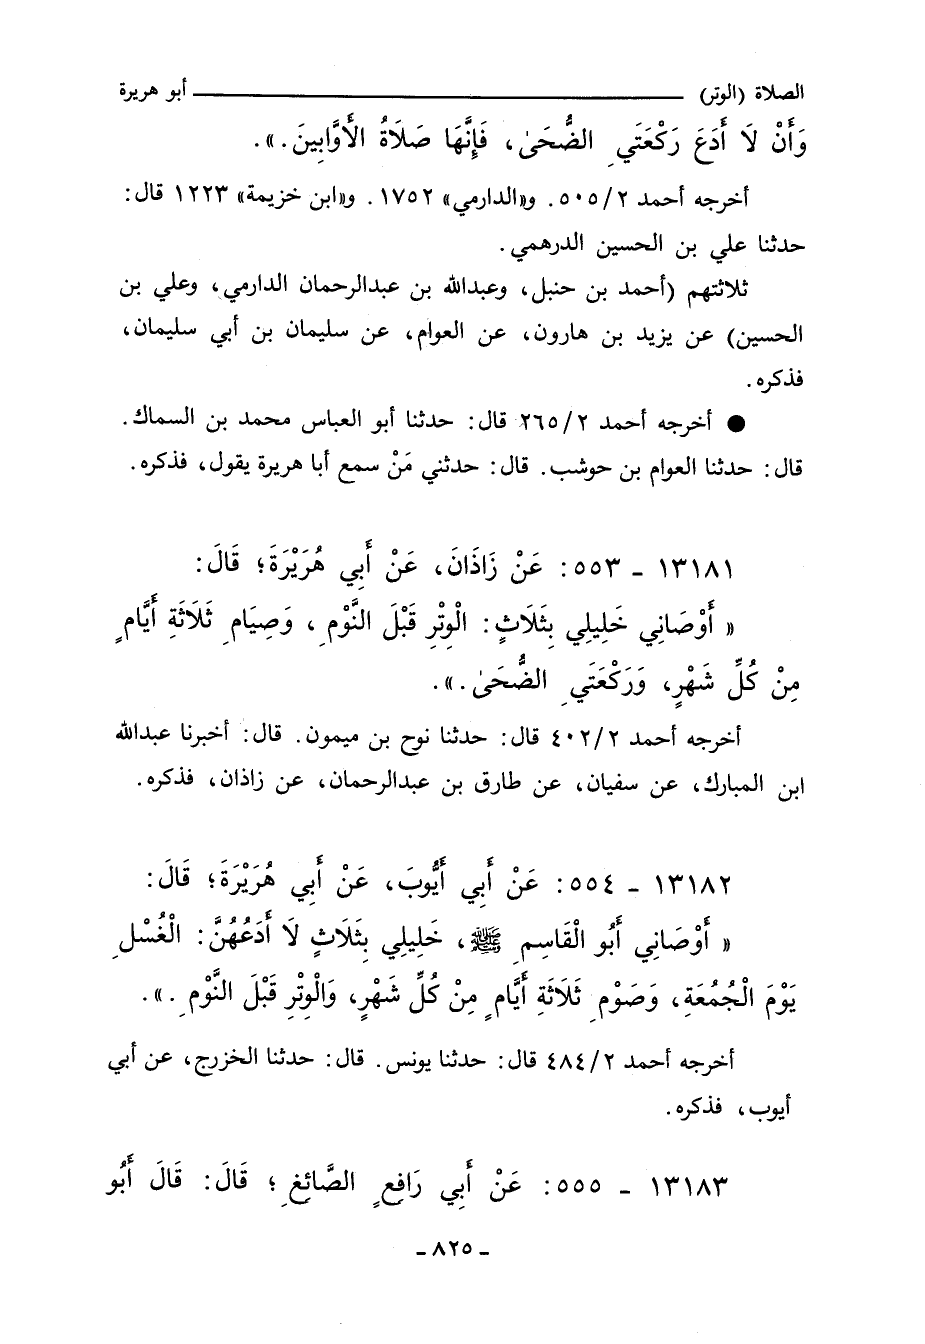 الصلاة (الوتر) ــــــــــــــــــــ أبو هريرة
وَأَنْ لَا أَدَعَ رَكْعَتَيِ الضُّحَىٰ، فَإِنَّهَا صَلَاةُ الأَوَّابِينَ.».
أخرجه أحمد ٢/ ٥٠٥. و«الدارمي» ١٧٥٢. و«ابن خزيمة» ١٢٢٣ قال:
حدثنا علي بن الحسين الدرهمي.
ثلاثتهم (أحمد بن حنبل، وعبدالله بن عبدالرحمان الدارمي، وعلي بن
الحسين) عن يزيد بن هارون، عن العوام، عن سليمان بن أبي سليمان،
فذكره.
● أخرجه أحمد ٢/ ٢٦٥ قال: حدثنا أبو العباس محمد بن السماك.
قال: حدثنا العوام بن حوشب. قال: حدثني مَنْ سمع أبا هريرة يقول، فذكره.
١٣١٨١ ـ ٥٥٣: عَنْ زَاذَانَ، عَنْ أَبِي هُرَيْرَةَ؛ قَالَ:
« أَوْصَانِي خَلِيلِي بِثَلَاثٍ: الْوِتْرِ قَبْلَ النَّوْمِ، وَصِيَامِ ثَلَاثَةِ أَيَّامٍ
مِنْ كُلِّ شَهْرٍ، وَرَكْعَتَيِ الضُّحَىٰ.».
أخرجه أحمد ٢/ ٤٠٢ قال: حدثنا نوح بن ميمون. قال: أخبرنا عبدالله
ابن المبارك، عن سفيان، عن طارق بن عبدالرحمان، عن زاذان، فذكره.
١٣١٨٢ ـ ٥٥٤: عَنْ أَبِي أَيُّوبَ، عَنْ أَبِي هُرَيْرَةَ؛ قَالَ:
« أَوْصَانِي أَبُو الْقَاسِمِ ﷺ، خَلِيلِي بِثَلَاثٍ لَا أَدَعُهُنَّ: الْغُسْلِ
يَوْمَ الْجُمُعَةِ، وَصَوْمِ ثَلَاثَةِ أَيَّامٍ مِنْ كُلِّ شَهْرٍ، وَالْوِتْرِ قَبْلَ النَّوْمِ.».
أخرجه أحمد ٢/ ٤٨٤ قال: حدثنا يونس. قال: حدثنا الخزرج، عن أبي
أيوب، فذكره.
١٣١٨٣ ـ ٥٥٥: عَنْ أَبِي رَافِعٍ الصَّائِغِ؛ قَالَ: قَالَ أَبُو
ـ ٨٢٥ ـ